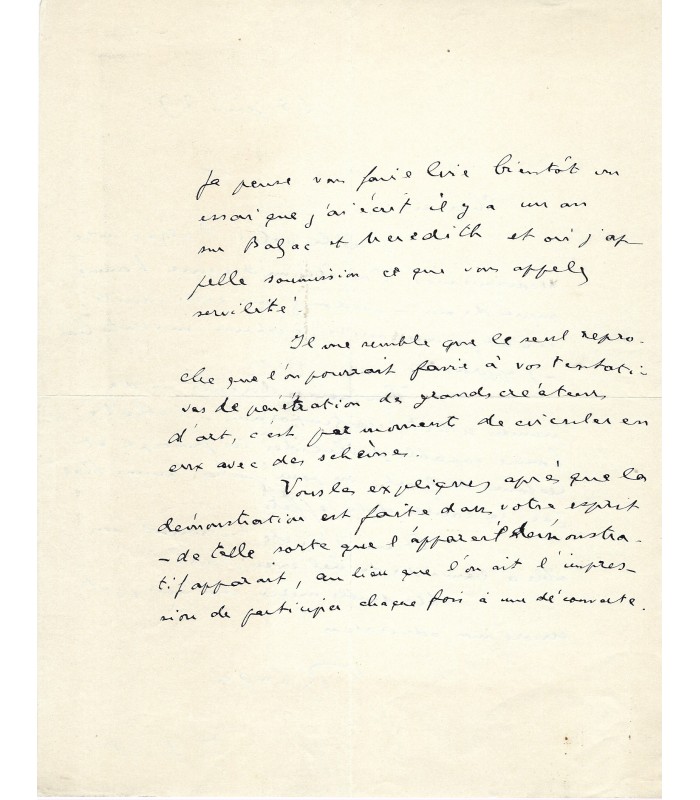 Je pense vous faire lire bientôt un
essai que j'ai écrit il y a un an
sur Balzac et Meredith et où j'ap
pelle soumission ce que vous appelez
servilité.
Il me semble que le seul repro-
che que l'on pourrait faire à vos tentati-
ves de pénétration de grands créateurs
d'art, c'est par moment de circuler en
eux avec des schèmes.
Vous les expliquez après que la
démonstration est faite dans votre esprit
- de telle sorte que l'appareil démonstra-
tif apparaît, au lieu que l'on ait l'impres-
sion de participer chaque fois à une découverte.